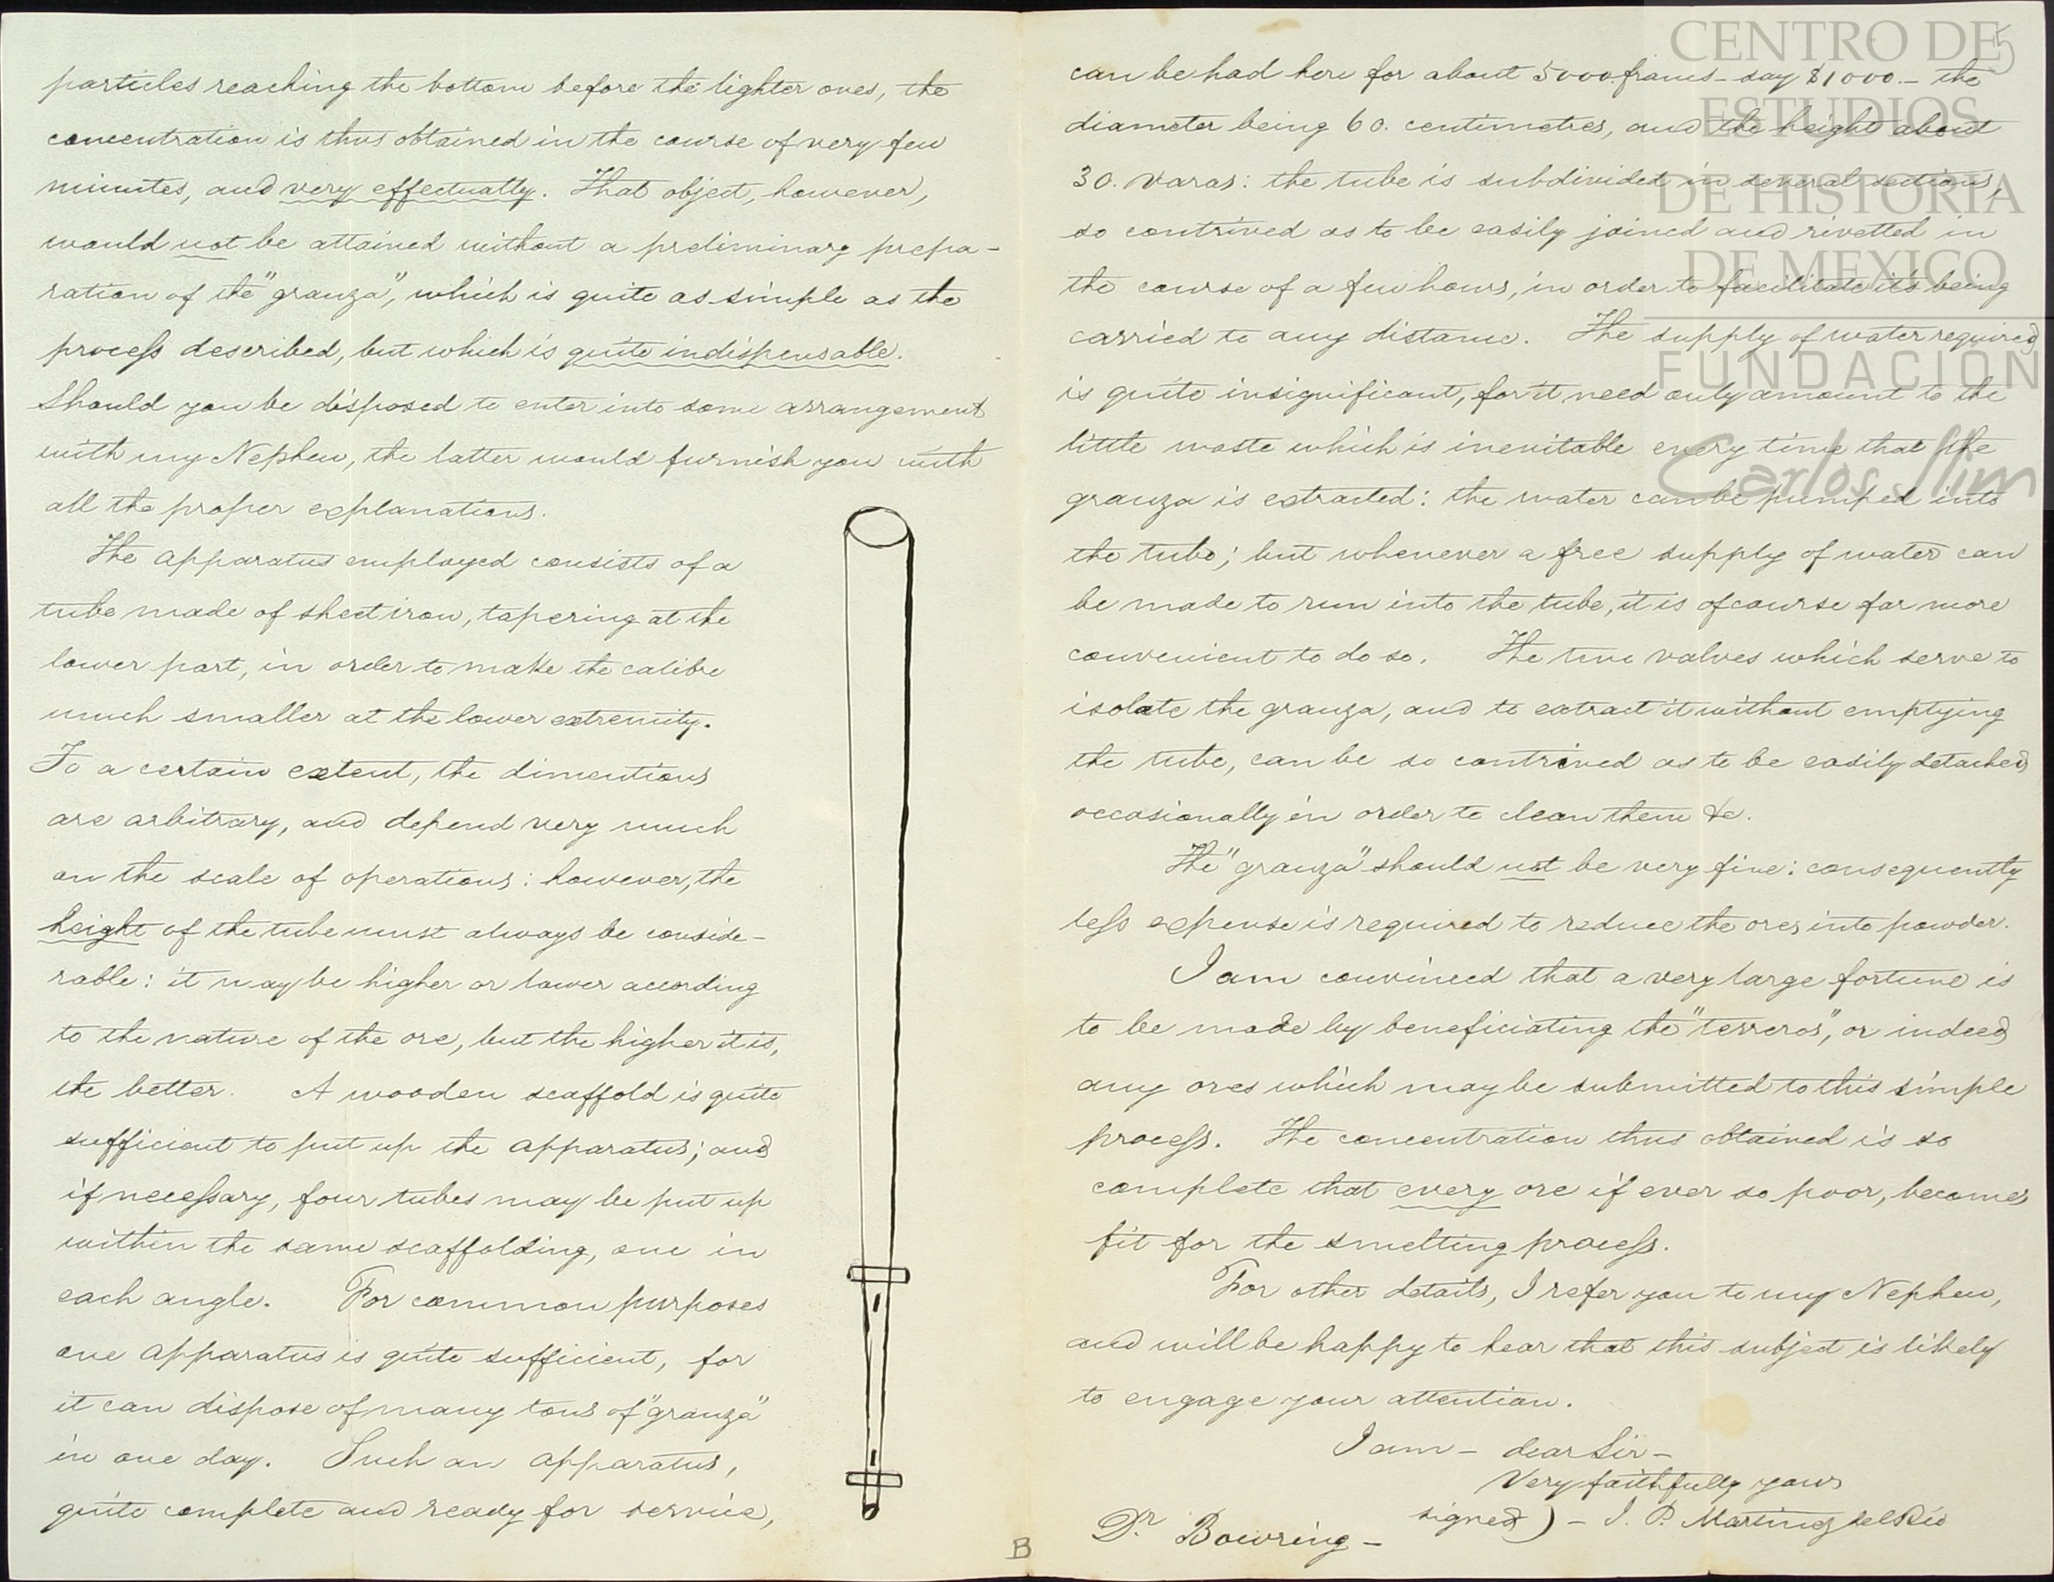 particles reaching the bottom before the lighter ones, the
concentration is thus obtained in the course of very few
minutes, and very effectually. That object, however,
would not be attained without a preliminary prepa-
ration of the "granza", which is quite as simple as the
process described, but which is quite indispensable.
Should you be disposed to enter into some arrangement
with my Nephew, the latter would furnish you with
all the proper explanations.
The apparatus employed consists of a
tube made of sheet iron, tapering at the
lower part, in order to make the calibre
much smaller at the lower extremity.
To a certain extent, the dimentions
are arbitrary, and depend very much
on the scale of operations: however, the
height of the tube must always be conside-
rable: it may be higher or lower according
to the nature of the ore, but the higher it is,
the better. A wooden scaffold is quite
sufficient to put up the apparatus; and
if necessary, four tubes may be put up
within the same scaffolding, one in
each angle. For common purposes
one apparatus is quite sufficient, for
it can dispose of many tons of "granza"
in one day. Such an apparatus,
quite complete and ready for service,
B
5
can be had here for about 5000 francs - say $1000. - the
diameter being 60. centimetres, and the height about
30. varas: the tube is subdivided in several sections,
so contrived as to be easily joined and rivetted in
the course of a few hours, in order to facilitate it's being
carried to any distance. The supply of water required
is quite insignificant, for it need only amount to the
little waste which is inevitable every time that the
granza is extracted: the water can be pumped into
the tube; but whenever a free supply of water can
be made to run into the tube, it is of course far more
convenient to do so. The two valves which serve to
isolate the granza, and to extract it without emptying
the tube, can be so contrived as to be easily detached
occasionally in order to clean them &c.
The "granza" should not be very fine: consequently
less expense is required to reduce the ores into powder.
I am convinced that a very large fortune is
to be made by beneficiating the "terreros", or indeed
any ores which may be submitted to this simple
process. The concentration thus obtained is so
complete that every ore if ever so poor, becomes
fit for the smelting process.
For other details, I refer you to my Nephew,
and will be happy to hear that this subject is likely
to engage your attention.
I am - dear Sir -
Very faithfully yours
signed) - J. P. Martinez del Rio
Dr. Bowring -
CENTRO DE
ESTUDIOS
DE HISTORIA
DE MEXICO
FUNDACION
Carlos Slim